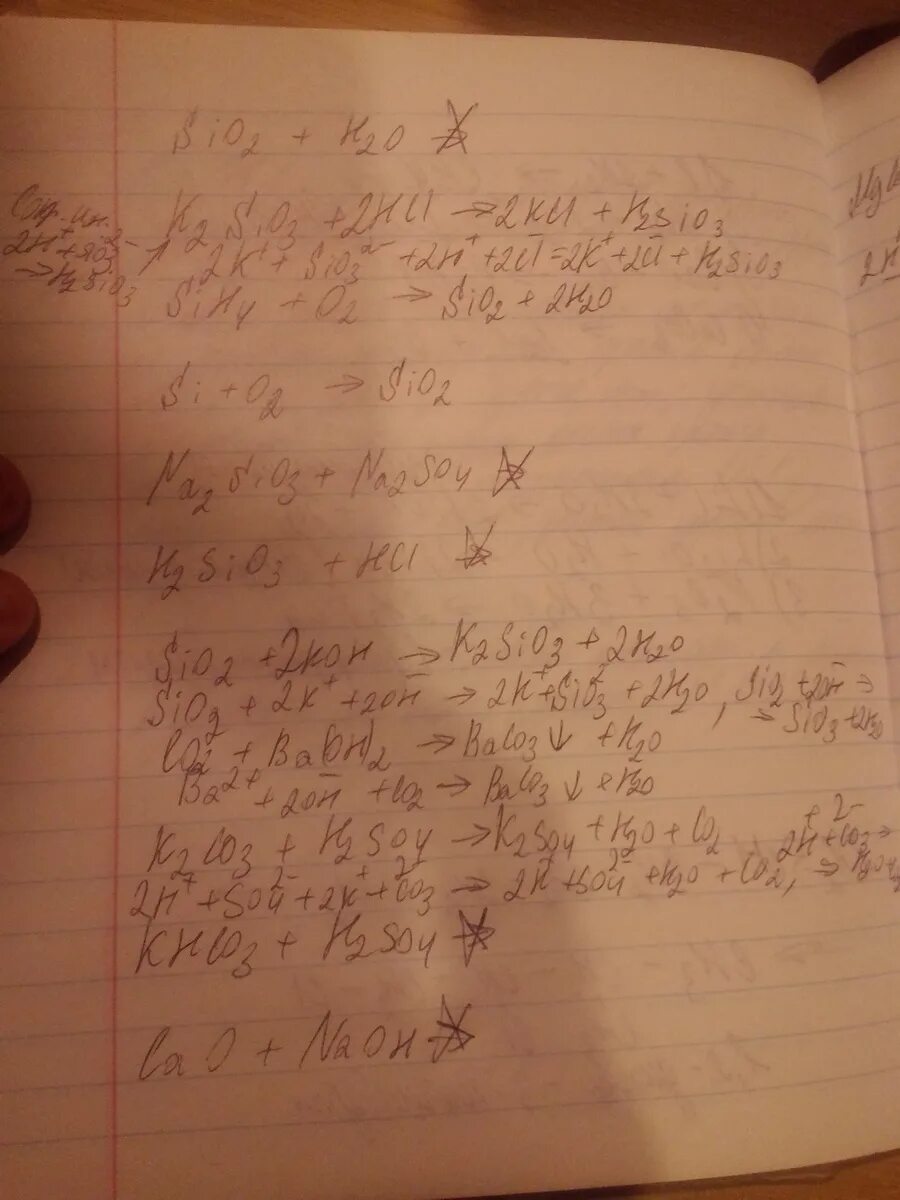 SiO2 + H2O ↛
Сокр. ин.
2H⁺ + SiO3²⁻
→ H2SiO3
K2SiO3 + 2HCl → 2KCl + H2SiO3
2K⁺ + SiO3²⁻ + 2H⁺ + 2Cl⁻ = 2K⁺ + 2Cl⁻ + H2SiO3
SiH4 + O2 → SiO2 + 2H2O
Si + O2 → SiO2
Na2SiO3 + Na2SO4 ↛
H2SiO3 + HCl ↛
SiO2 + 2KOH → K2SiO3 + 2H2O
SiO2 + 2K⁺ + 2OH⁻ → 2K⁺ + SiO3²⁻ + 2H2O, SiO2 + 2OH⁻ →
→ SiO3 + 2H2O
CO2 + Ba(OH)2 → BaCO3↓ + H2O
Ba²⁺ + 2OH⁻ + CO2 → BaCO3↓ + H2O
K2CO3 + H2SO4 → K2SO4 + H2O + CO2
2H⁺ + CO3²⁻ →
2H⁺ + SO4²⁻ + 2K⁺ + CO3²⁻ → 2K⁺ + SO4²⁻ + H2O + CO2, → H2O +
KHCO3 + H2SO4 ↛
CaO + NaOH ↛
Mg
2H⁺